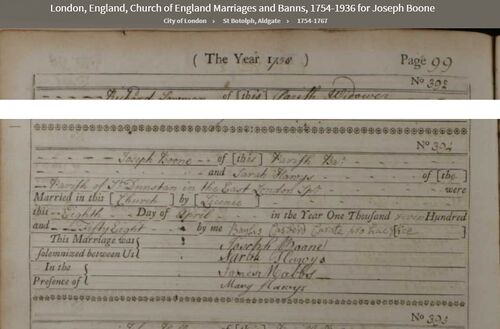 London, England, Church of England Marriages and Banns, 1754-1936 for Joseph Boone
City of London › St Botolph, Aldgate › 1754-1767
( The Year 1758 ) Page 99
No 392
of [this] Parish Widower
No 394
Joseph Boone of [this] Parish
and Sarah Hawys of [the]
Parish of St Dunstan in the East London were
Married in this [Church] by [Licence]
this Eighth Day of April in the Year One Thousand seven Hundred
and Fifty Eight by me
This Marriage was
solemnized between Us
Joseph Boone
Sarah Hawys
In the
Presence of
James Mabbs
Mary Hawys
No 395